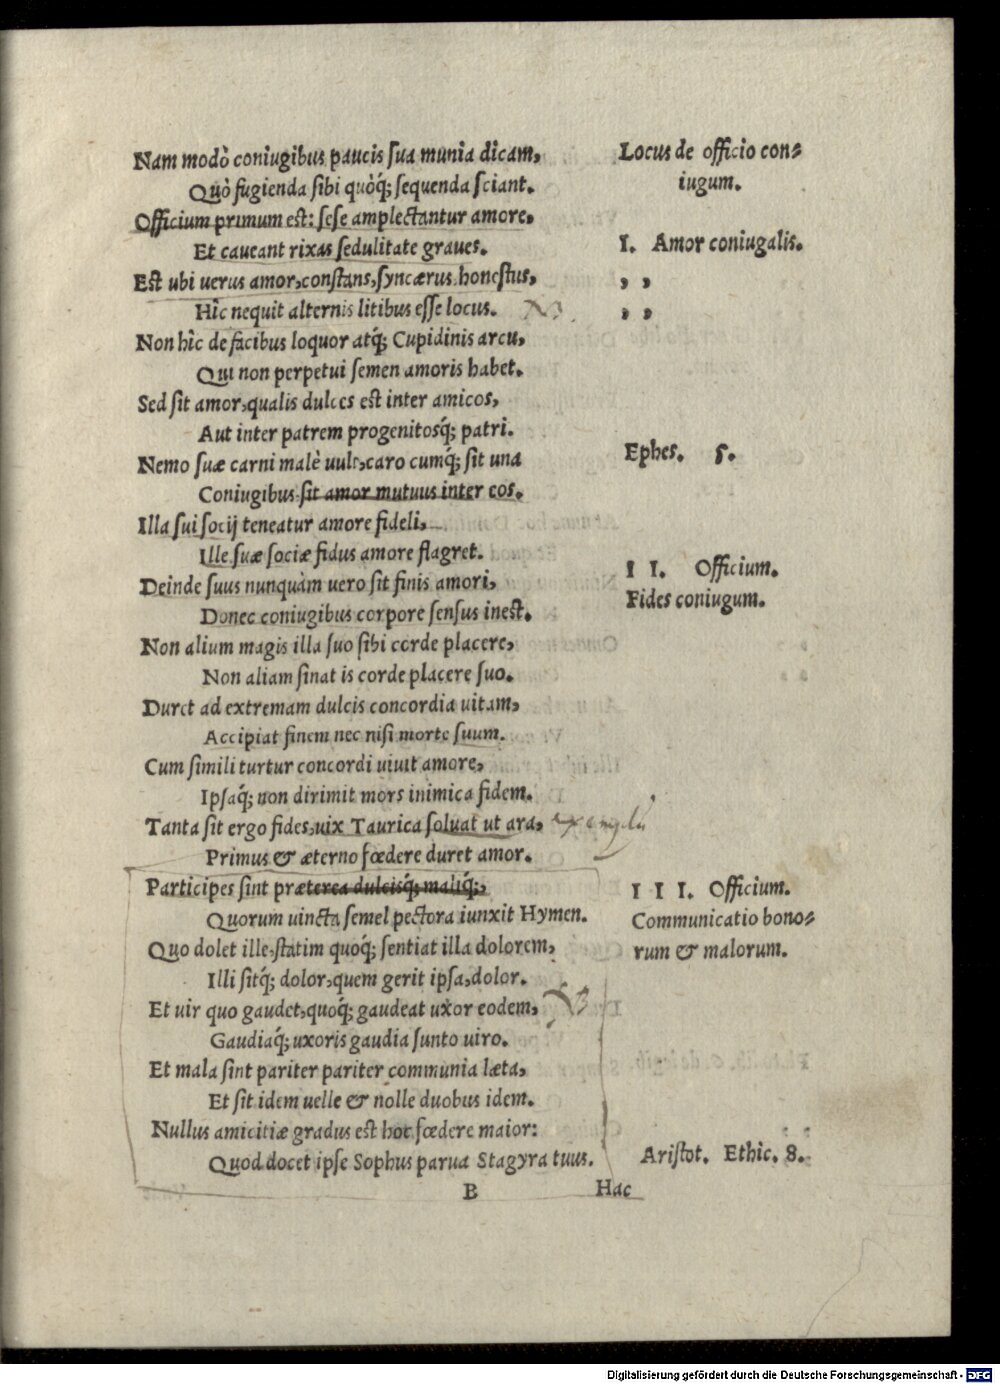 Nam modò coniugibus paucis ſua munia dicam,
Quò fugienda ſibi quòq́; ſequenda ſciant.
Officium primum est: ſeſe amplectantur amore,
Et caueant rixas ſedulitate graues.
Est ubi uerus amor, conſtans, ſyncærus, honeſtus,
Hîc nequit alternis litibus eſſe locus.
Non hîc de facibus loquor atq́; Cupidinis arcu,
Qui non perpetui ſemen amoris habet.
Sed ſit amor, qualis dulces est inter amicos,
Aut inter patrem progenitosq́; patri.
Nemo ſuæ carni malè uult, caro cumq́; ſit una
Coniugibus ſit amor mutuus inter eos.
Illa ſui ſocij teneatur amore fideli,
Ille ſuæ ſociæ fidus amore flagret.
Deinde ſuus nunquàm uero ſit finis amori,
Donec coniugibus corpore ſenſus inest.
Non alium magis illa ſuo ſibi corde placere,
Non aliam ſinat is corde placere ſuo.
Duret ad extremam dulcis concordia uitam,
Accipiat finem nec niſi morte ſuum.
Cum ſimili turtur concordi uiuit amore,
Ipſaq́; non dirimit mors inimica fidem.
Tanta ſit ergo fides, uix Taurica ſoluat ut ara,
Primus & æterno fœdere duret amor.
Participes ſint præterea dulcisq́; maliq́;,
Quorum uincta ſemel pectora iunxit Hymen.
Quo dolet ille, ſtatim quoq́; ſentiat illa dolorem,
Illi ſitq́; dolor, quem gerit ipſa, dolor.
Et uir quo gaudet, quoq́; gaudeat uxor eodem,
Gaudiaq́; uxoris gaudia ſunto uiro.
Et mala ſint pariter pariter communia læta,
Et ſit idem uelle & nolle duobus idem.
Nullus amicitiæ gradus est hoc fœdere maior:
Quod docet ipſe Sophus parua Stagyra tuus.
B
Hac
Locus de officio con⸗
iugum.
I. Amor coniugalis.
, ,
, ,
Epheſ. 5.
I I. Officium.
Fides coniugum.
I I I. Officium.
Communicatio bono⸗
rum & malorum.
Ariſtot. Ethic. 8.
Digitalisierung gefördert durch die Deutsche Forschungsgemeinschaft - DFG